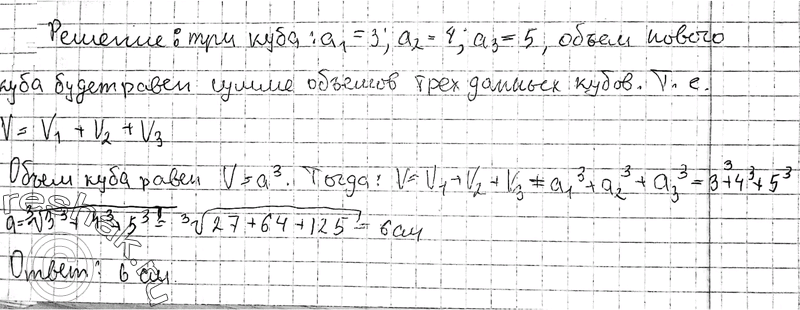 Решение: три куба: a₁=3; a₂=4; a₃=5, объем нового
куба будет равен сумме объемов трех данных кубов. Т. е.
V = V₁ + V₂ + V₃
Объем куба равен V=a³. Тогда: V=V₁+V₂+V₃=a₁³+a₂³+a₃³=3³+4³+5³
a=³√(3³+4³+5³)=³√(27+64+125)=6см
Ответ: 6 см.
reshak.ru